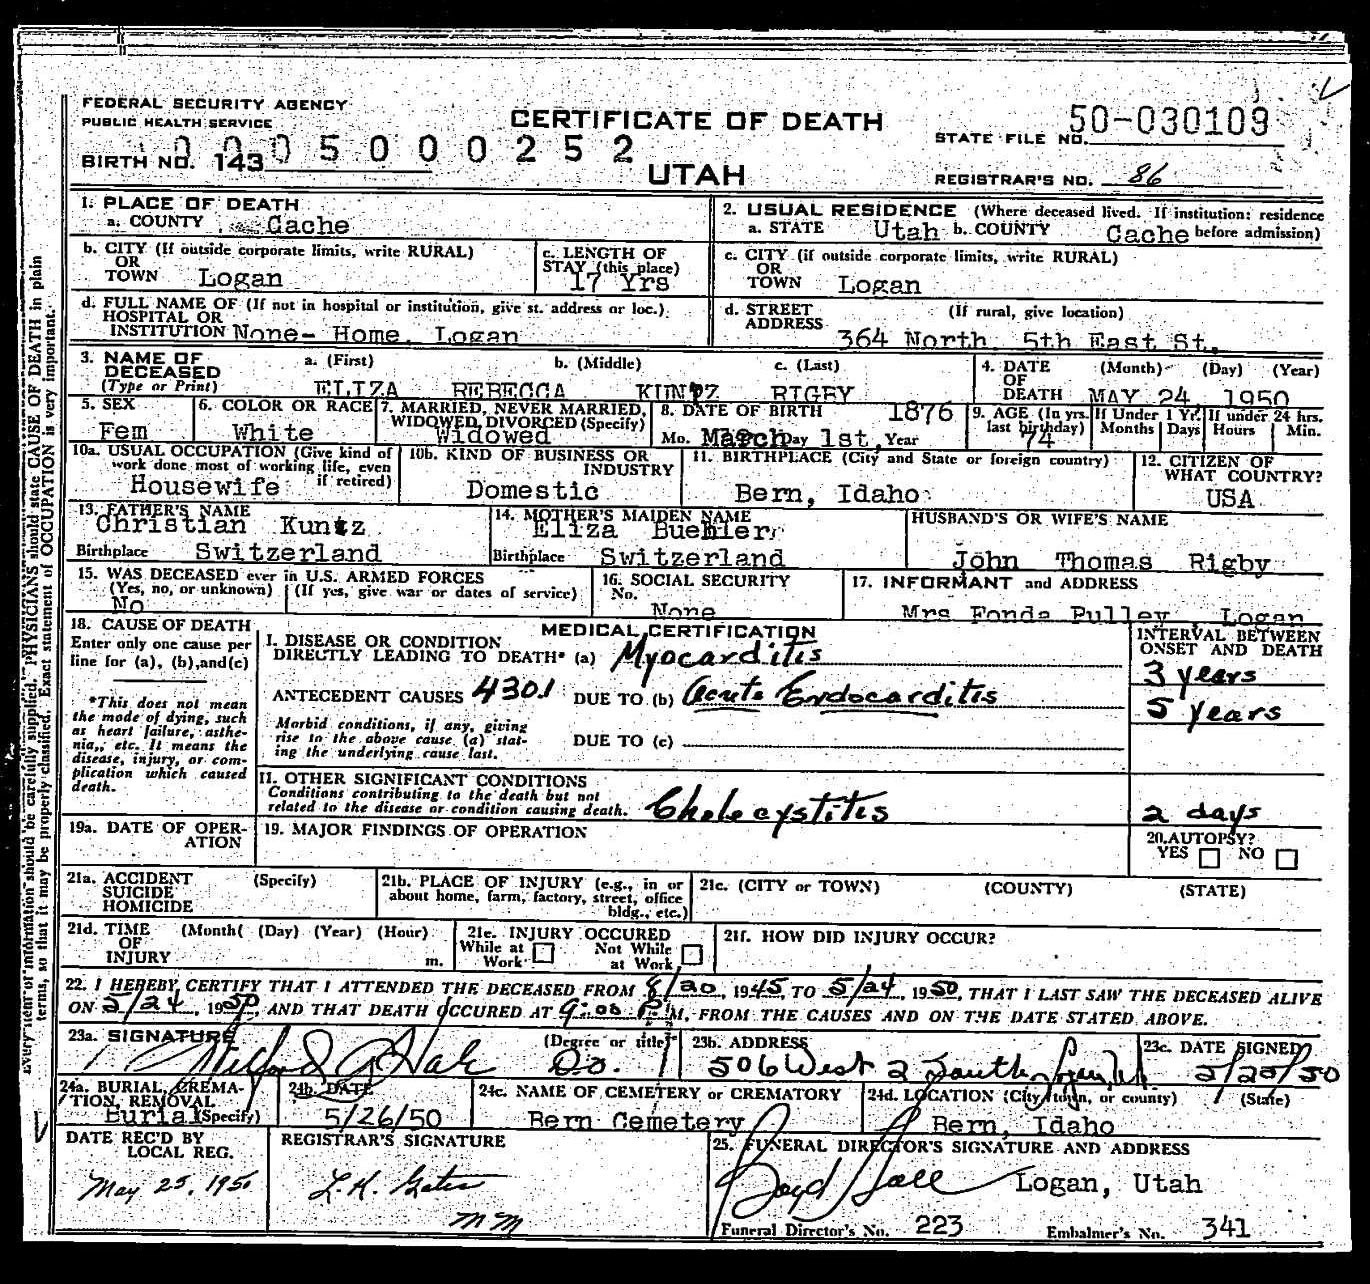 FEDERAL SECURITY AGENCY
PUBLIC HEALTH SERVICE
CERTIFICATE OF DEATH
UTAH
STATE FILE NO. 50-030109
BIRTH NO. 143 0005000252
REGISTRAR'S NO. 86
1. PLACE OF DEATH
a. COUNTY Cache
2. USUAL RESIDENCE (Where deceased lived. If institution: residence before admission)
a. STATE Utah b. COUNTY Cache
b. CITY (If outside corporate limits, write RURAL)
OR
TOWN Logan
c. LENGTH OF
STAY (this place)
17 Yrs
c. CITY (if outside corporate limits, write RURAL)
OR
TOWN Logan
d. FULL NAME OF (If not in hospital or institution, give st. address or loc.)
HOSPITAL OR
INSTITUTION None- Home, Logan
d. STREET (If rural, give location)
ADDRESS 364 North 5th East St.
3. NAME OF
DECEASED
(Type or Print)
a. (First) b. (Middle) c. (Last)
ELIZA REBECCA KUNTZ RIGBY
4. DATE (Month) (Day) (Year)
OF
DEATH MAY 24, 1950
5. SEX
Fem
6. COLOR OR RACE
White
7. MARRIED, NEVER MARRIED,
WIDOWED, DIVORCED (Specify)
Widowed
8. DATE OF BIRTH 1876
Mo. March Day 1st, Year
9. AGE (In yrs.
last birthday)
74
If Under 1 Yr.
Months Days
If under 24 hrs.
Hours Min.
10a. USUAL OCCUPATION (Give kind of
work done most of working life, even
if retired)
Housewife
10b. KIND OF BUSINESS OR
INDUSTRY
Domestic
11. BIRTHPLACE (City and State or foreign country)
Bern, Idaho
12. CITIZEN OF
WHAT COUNTRY?
USA
13. FATHER'S NAME
Christian Kuntz
Birthplace Switzerland
14. MOTHER'S MAIDEN NAME
Eliza Buehler
Birthplace Switzerland
HUSBAND'S OR WIFE'S NAME
John Thomas Rigby
15. WAS DECEASED ever in U.S. ARMED FORCES
(Yes, no, or unknown) (If yes, give war or dates of service)
No
16. SOCIAL SECURITY
No.
None
17. INFORMANT and ADDRESS
Mrs Fonda Pulley, Logan
18. CAUSE OF DEATH
Enter only one cause per
line for (a), (b), and (c)
*This does not mean
the mode of dying, such
as heart failure, asthe-
nia, etc. It means the
disease, injury, or com-
plication which caused
death.
MEDICAL CERTIFICATION
I. DISEASE OR CONDITION
DIRECTLY LEADING TO DEATH* (a) Myocarditis
ANTECEDENT CAUSES 4301 DUE TO (b) Acute Endocarditis
Morbid conditions, if any, giving
rise to the above cause (a) stat-
ing the underlying cause last.
DUE TO (c)
II. OTHER SIGNIFICANT CONDITIONS
Conditions contributing to the death but not
related to the disease or condition causing death. Cholecystitis
INTERVAL BETWEEN
ONSET AND DEATH
3 years
5 years
2 days
19a. DATE OF OPER-
ATION
19. MAJOR FINDINGS OF OPERATION
20. AUTOPSY?
YES NO
21a. ACCIDENT (Specify)
SUICIDE
HOMICIDE
21b. PLACE OF INJURY (e.g., in or
about home, farm, factory, street, office
bldg., etc.)
21c. (CITY or TOWN) (COUNTY) (STATE)
21d. TIME (Month) (Day) (Year) (Hour)
OF
INJURY m.
21e. INJURY OCCURED
While at Work Not While at Work
21f. HOW DID INJURY OCCUR?
22. I HEREBY CERTIFY THAT I ATTENDED THE DECEASED FROM 8/20, 1945, TO 5/24, 1950, THAT I LAST SAW THE DECEASED ALIVE
ON 5/24, 1950, AND THAT DEATH OCCURED AT 9:00 P.M, FROM THE CAUSES AND ON THE DATE STATED ABOVE.
23a. SIGNATURE (Degree or title)
D.O.
23b. ADDRESS
506 West 2 South, Logan, Ut
23c. DATE SIGNED
5/25/50
24a. BURIAL, CREMA-
TION, REMOVAL
Burial (Specify)
24b. DATE
5/26/50
24c. NAME OF CEMETERY or CREMATORY
Bern Cemetery
24d. LOCATION (City, town, or county) (State)
Bern, Idaho
DATE REC'D BY
LOCAL REG.
May 25, 1950
REGISTRAR'S SIGNATURE
L.H. Gates
mm
25. FUNERAL DIRECTOR'S SIGNATURE AND ADDRESS
Boyd Hall Logan, Utah
Funeral Director's No. 223 Embalmer's No. 341
Every item of information should be carefully supplied. PHYSICIANS should state CAUSE OF DEATH in plain
terms, so that it may be properly classified. Exact statement of OCCUPATION is very important.